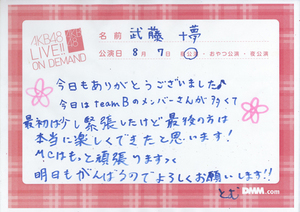 AKB48
LIVE!!
ON DEMAND
AKB48
名前 武藤 十夢
公演日 8月7日 昼公演・おやつ公演・夜公演
今日もありがとうございました♪
今日はteamBのメンバーさんが多くて
最初は少し緊張したけど最後の方は
本当に楽しくできたと思います!
MCはもっと頑張りますっ
明日もがんばるのでよろしくお願いします!!
とむ
DMM.com